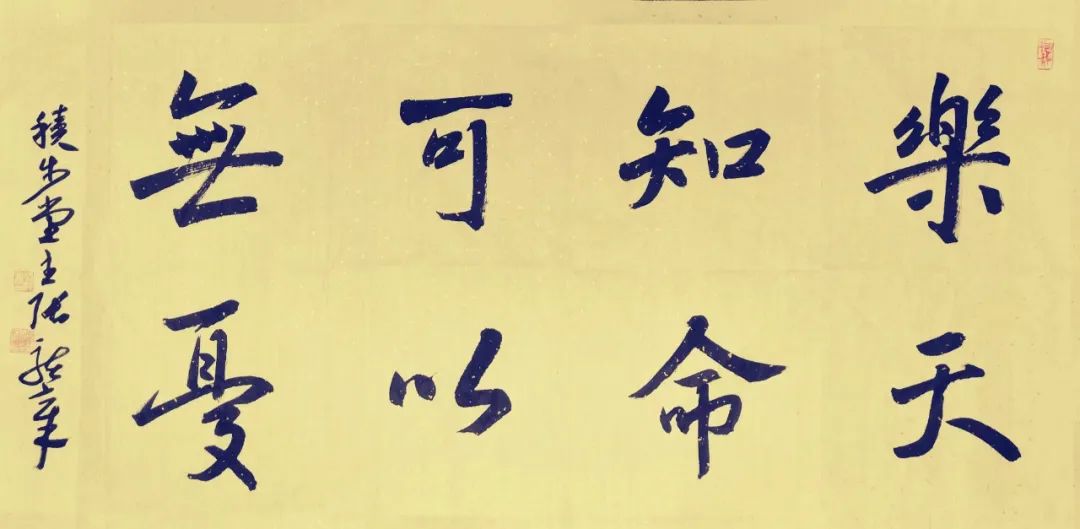 樂天
知命
可以
無憂
積步堂主張